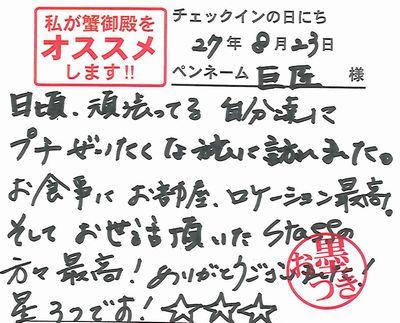 私が蟹御殿を
オススメ
します!!
チェックインの日にち
27年 8月23日
ペンネーム 巨匠 様
日頃、頑張ってる 自分達に
プチぜいたくな旅に訪れました。
お食事に お部屋、ロケーション最高。
そして お世話頂いた Staffの
方々 最高! ありがとうございました!
星3つです! ☆☆☆
お墨つき